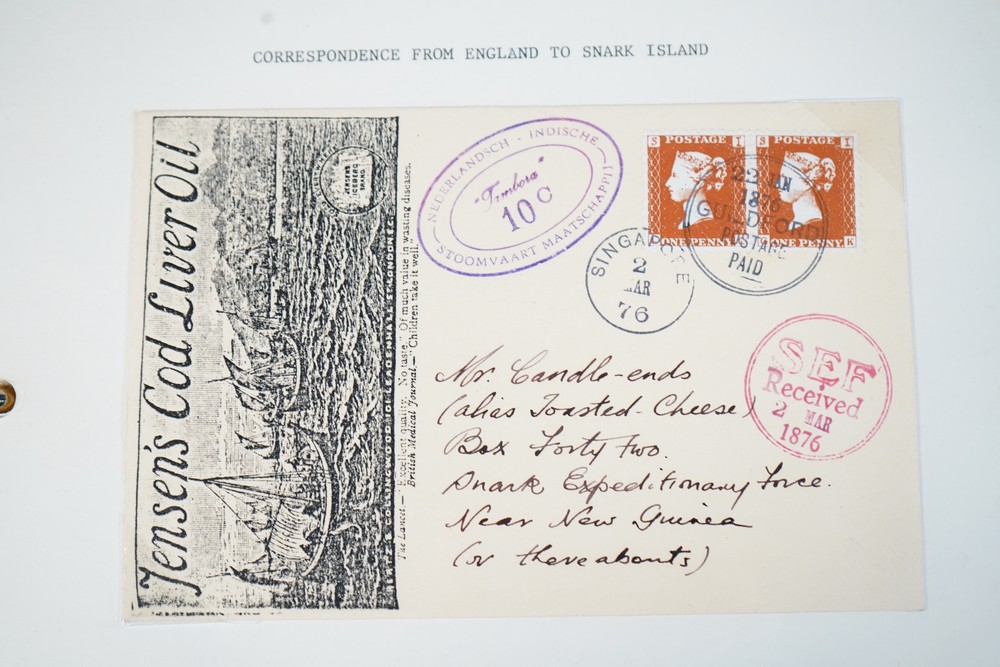 CORRESPONDENCE FROM ENGLAND TO SNARK ISLAND
Jensen's Cod Liver Oil
JENSEN'S
ICEBERG
BRAND
The Lancet.—"Excellent quality. No taste." Of much value in wasting diseases.
British Medical Journal.—"Children take it well."
NEDERLANDSCH - INDISCHE
"Timbora"
10 C
STOOMVAART MAATSCHAPPIJ
S POSTAGE I
ONE PENNY
S POSTAGE I
ONE PENNY K
22 JAN
1876
GUILDFORD
POSTAGE
PAID
SINGAPORE
2
MAR
76
SEF
Received
2 MAR
1876
Mr. Candle-ends
(alias Toasted-Cheese)
Box Forty Two.
Snark Expeditionary Force.
Near New Guinea
(or thereabouts)